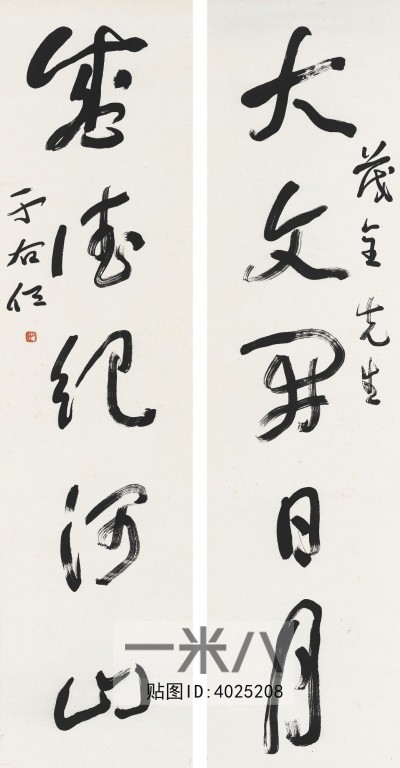 大文開日月
茂全先生
盛德紀河山
于右任
一米八
贴图ID:4025208